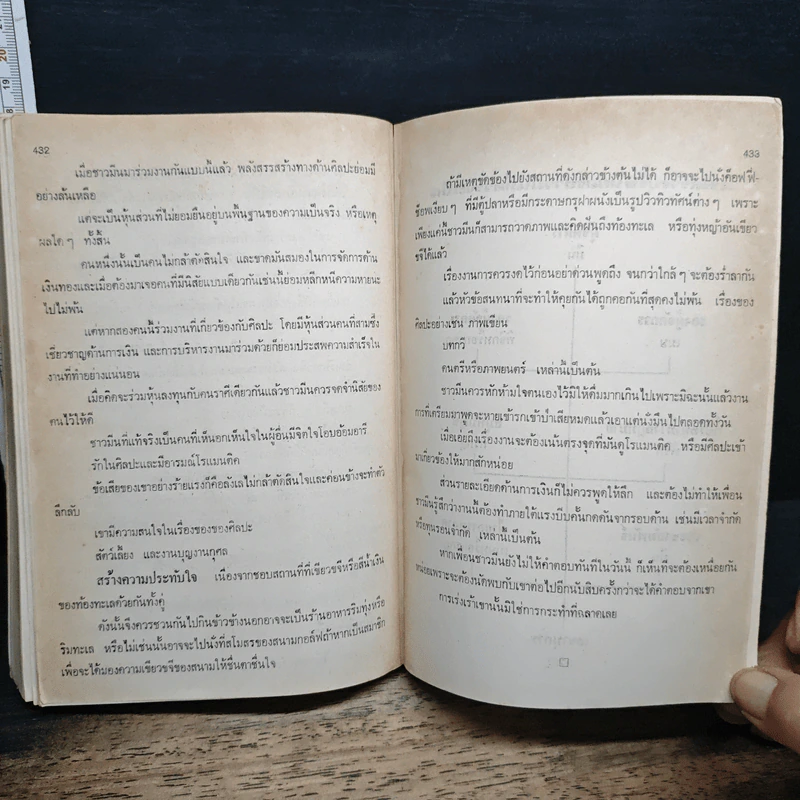 20
19
8
432
เมื่อชาวมีนมาร่วมงานกันแบบนี้แล้ว พลังสรรสร้างทางด้านศิลปะย่อมมี
อย่างล้นเหลือ
แต่จะเป็นหุ้นส่วนที่ไม่ยอมยืนอยู่บนพื้นฐานของความเป็นจริง หรือเหตุ
ผลใด ๆ ทั้งสิ้น
คนหนึ่งนั้นเป็นคนไม่กล้าตัดสินใจ และขาดมันสมองในการจัดการด้าน
เงินทองและเมื่อต้องมาเจอคนที่มีนิสัยแบบเดียวกันเช่นนี้ย่อมหลีกหนีความหายนะ
ไปไม่พ้น
แต่หากสองคนนี้ร่วมงานที่เกี่ยวข้องกับศิลปะ โดยมีหุ้นส่วนคนที่สามซึ่ง
เชี่ยวชาญด้านการเงิน และการบริหารงานมาร่วมด้วยก็ย่อมประสพความสำเร็จใน
งานที่ทำอย่างแน่นอน
เมื่อคิดจะร่วมหุ้นลงทุนกับคนราศีเดียวกันแล้วชาวมีนควรจดจำนิสัยของ
คนไว้ให้ดี
ชาวมีนที่แท้จริงเป็นคนที่เห็นอกเห็นใจในผู้อื่นมีจิตใจโอบอ้อมอารี
รักในศิลปะและมีอารมณ์โรแมนติค
ข้อเสียของเขาอย่างร้ายแรงก็คือลังเลไม่กล้าตัดสินใจและค่อนข้างจะทำตัว
ลึกลับ
เขามีความสนใจในเรื่องของของศิลปะ
สัตว์เลี้ยง และงานบุญงานกุศล
สร้างความประทับใจ เนื่องจากชอบสถานที่ที่เขียวขจีหรือสีน้ำเงิน
ของท้องทะเลด้วยกันทั้งคู่
ดังนั้นจึงควรชวนกันไปกินข้าวข้างนอกอาจจะเป็นร้านอาหารริมทุ่งหรือ
ริมทะเล หรือไม่เช่นนั้นอาจจะไปนั่งที่สโมสรของสนามกอล์ฟถ้าหากเป็นสมาชิก
เพื่อจะได้มองความเขียวขจีของสนามให้ชื่นตาชื่นใจ
433
ถ้ามีเหตุขัดข้องไปยังสถานที่ดังกล่าวข้างต้นไม่ได้ ก็อาจจะไปนั่งค็อฟฟี่-
ช็อพเงียบ ๆ ที่มีตู้ปลาหรือมีกระดาษกรุฝาผนังเป็นรูปวิวทิวทัศน์ต่าง ๆ เพราะ
เพียงแค่นี้ชาวมีนก็สามารถวาดภาพและคิดฝันถึงท้องทะเล หรือทุ่งหญ้าอันเขียว
ขจีได้แล้ว
เรื่องงานการควรงดไว้ก่อนอย่าด่วนพูดถึง จนกว่าใกล้ ๆ จะต้องร่ำลากัน
แล้วหัวข้อสนทนาที่จะทำให้คุยกันได้ถูกคอกันที่สุดคงไม่พ้น เรื่องของ
ศิลปะอย่างเช่น ภาพเขียน
บทกวี
ดนตรีหรือภาพยนตร์ เหล่านี้เป็นต้น
ชาวมีนควรหักห้ามใจตนเองไว้มิให้ดื่มมากเกินไปเพราะมิฉะนั้นแล้วงาน
การที่เตรียมมาพูดจะหายเข้ารกเข้าป่าเสียหมดแล้วเอาแต่นั่งมึนไปตลอดทั้งวัน
เมื่อเอ่ยถึงเรื่องงานจะต้องเน้นตรงจุดที่มันดูโรแมนติค หรือมีศิลปะเข้า
มาเกี่ยวข้องให้มากสักหน่อย
ส่วนรายละเอียดด้านการเงินก็ไม่ควรพูดให้ลึก และต้องไม่ทำให้เพื่อน
ชาวมีนรู้สึกว่างานนี้ต้องทำภายใต้แรงบีบคั้นกดดันจากรอบด้าน เช่นมีเวลาจำกัด
หรือทุนรอนจำกัด เหล่านี้เป็นต้น
หากเพื่อนชาวมีนยังไม่ให้คำตอบทันทีในวันนี้ ก็เห็นที่จะต้องเหนื่อยกัน
หน่อยเพราะจะต้องนัดพบกับเขาต่อไปอีกนับสิบครั้งกว่าจะได้คำตอบจากเขา
การเร่งเร้าเขานั้นมิใช่การกระทำที่ฉลาดเลย